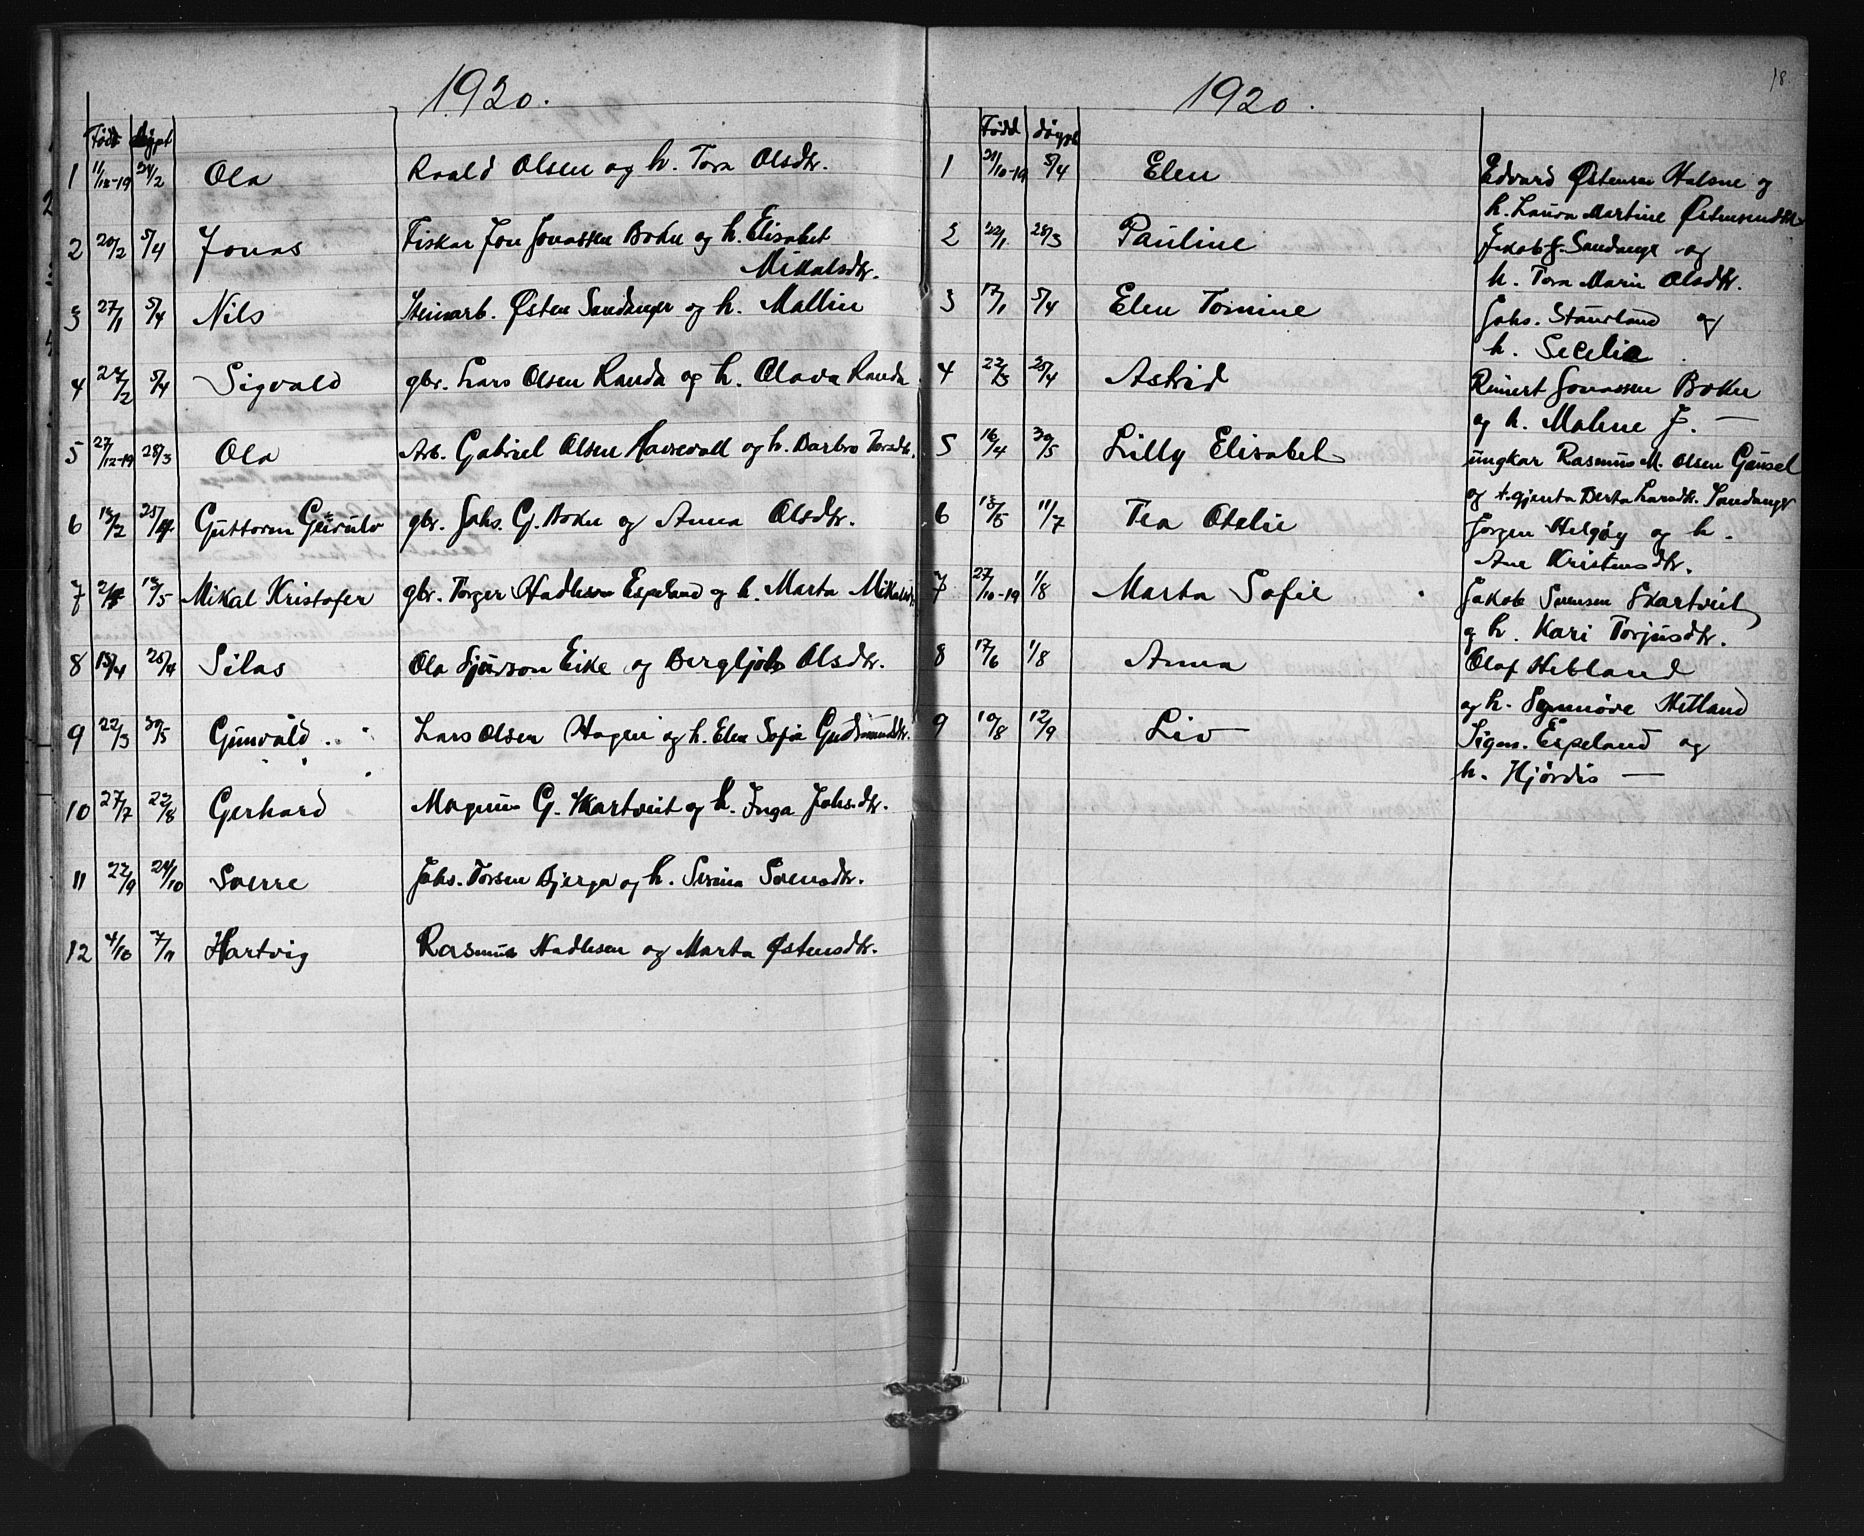 1920.
Född döypt
1 11/12-19 24/2 Ola Roald Olsen og h. Tora Olsdtr.
2 20/2 5/4 Jonas Fiskar Jon Jonassen Bokn og h. Elisabet
Mikalsdtr.
3 27/1 5/4 Nils Steinarb. Østen Sandanger og h. Mallin
4 24/2 5/4 Sigvald gbr. Lars Olsen Randa og h. Olava Randa
5 27/12-19 28/3 Ola Arb. Gabriel Olsen Havsevoll og h. Barbro Torsdtr.
6 15/2 25/4 Guttorm gbr. Johs. G. Bokn og Anna Olsdtr.
7 13/5 Mikal Kristofer gbr. Torger Hadleson Espeland og h. Marta Mikalsdtr.
8 15/4 25/4 Silas Ola Sjurson Eike og Bergljot Olsdtr.
9 22/3 30/5 Gunvald Lars Olsen Hagen og h. Elen Sofie Gudmundsdtr.
10 27/7 22/8 Gerhard Magnus G. Skartveit og h. Inga Johs.dtr.
11 22/9 24/10 Sverre Johs. Torsen Bjerga og h. Serina Sorensdtr.
12 4/10 7/11 Hartvig Rasmus Hadlesen og Marta Østensdtr.
18.
1920.
Född döypt
1 21/10-19 5/4 Elen Edvard Østensen Halsne og
h. Laura Martine Østensensdtr
2 22/1 28/3 Pauline Jakob J. Sandanger og
h. Tora Marie Olsdtr.
3 17/1 5/4 Elen Tomine Johs. Staurland og
h. Secelia.
4 22/3 25/4 Astrid Reinert Jonassen Bokn
og h. Malene J. —
5 16/4 30/5 Lilly Elisabet ungkar Rasmus M. Olsen Gausel
og t. gjenta Berta Larsdtr. Sandanger
6 13/5 11/7 Tea Otelie Jorgen Helgøy og h.
Ane Kristensdtr.
7 27/10-19 1/8 Marta Sofie Jakob Sorensen Skartveit
og h. Kari Torjusdtr.
8 17/6 1/8 Anna Olaf Hetland
og h. Synnøve Hetland
9 10/8 12/9 Liv Sigm. Espeland og
h. Hjørdis —